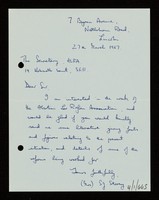 7 Bryan Avenue,
Road,
Lincoln
27th March 1967
The Secretary ALRA
Dear Sir
I am interested in the work of
the Abortion Law Reform Association and
would be glad if you would kindly
send me some literature giving facts
and figures relating to the present
situation, and details of some of the
reforms being worked for
Yours faithfully,
(Mrs)